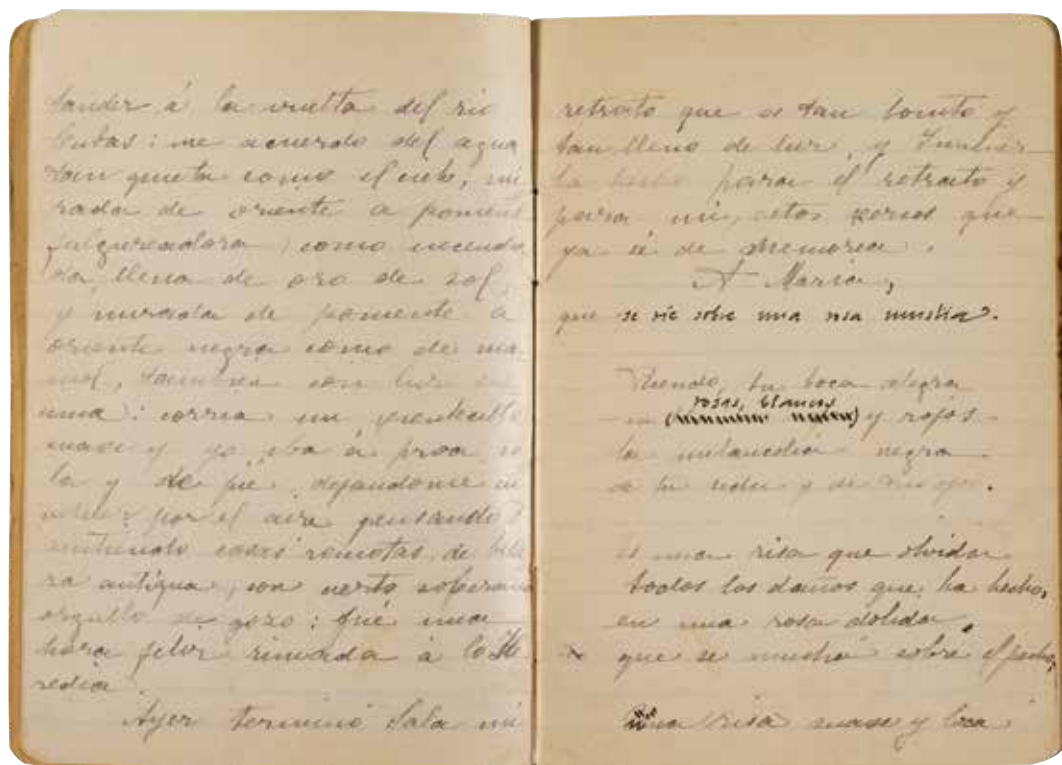 tander á la vuelta del rio
Cubas: me acuerdo del agua
tan quieta como el cielo, mi
rada de oriente a poniente
fulgureadora, como incendia
da, llena de oro de sol,
y mirada de poniente á
oriente negra como de
tambien con luz
corria un vientecillo
suave y yo iba á proa so
la y de pié, dejandome
por el aire pensando
cosas remotas, de
ra antigua, con cierto soberano
orgullo de gozo: fué una
hora feliz rimada á lo He
redia.
Ayer terminó Sala mi
retrato que es tan bonito y
tan lleno de luz, y
ha hecho para el retrato y
para mi, estos versos que
ya sé de memoria.
A Maria,
que se rie sobre una rosa mustia.
Riendo, tu boca alegra
rosas, blancos
en y rojos
la melancolia negra
de tu y de tus ojos.
Es una risa que olvida
todos los daños que ha hecho,
en una rosa dolida,
que se mustia sobre el pecho;
Una risa suave y loca